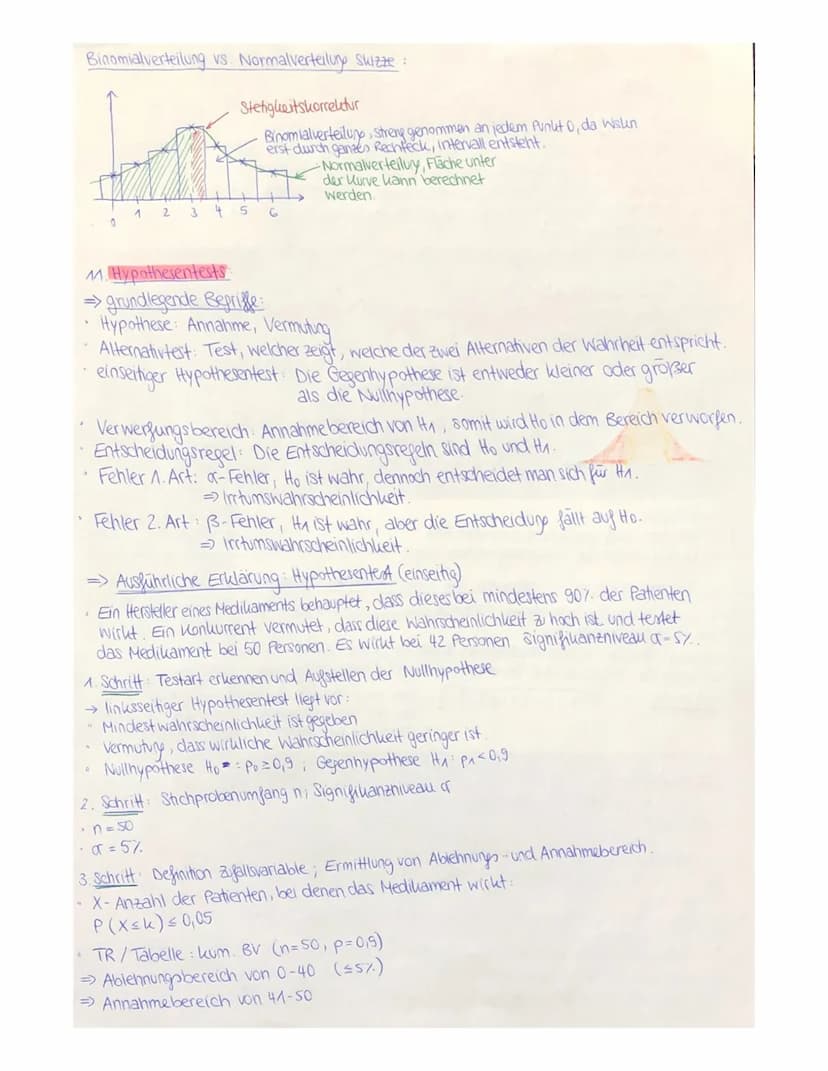 Binomialverteilung vs. Normalverteilung Skizze :
Stetigkeitskorrektur
Binomialverteilung, streng genommen an jedem Punkt 0, da Wskn
erst durch ganzes Rechteck, Intervall entsteht.
Normalverteilung, Fläche unter
der Kurve kann berechnet
werden.
0 1 2 3 4 5 6
11. Hypothesentests
⇒ grundlegende Begriffe:
• Hypothese: Annahme, Vermutung
• Alternativtest: Test, welcher zeigt, welche der zwei Alternativen der Wahrheit entspricht.
• einseitiger Hypothesentest: Die Gegenhypothese ist entweder kleiner oder größer
als die Nullhypothese.
• Verwerfungsbereich: Annahmebereich von H1, somit wird H0 in dem Bereich verworfen.
• Entscheidungsregel: Die Entscheidungsregeln sind H0 und H1.
• Fehler 1. Art: α-Fehler, H0 ist wahr, dennoch entscheidet man sich für H1.
⇒ Irrtumswahrscheinlichkeit.
• Fehler 2. Art: β-Fehler, H1 ist wahr, aber die Entscheidung fällt auf H0.
⇒ Irrtumswahrscheinlichkeit.
⇒ Ausführliche Erklärung: Hypothesentest (einseitig)
• Ein Hersteller eines Medikaments behauptet, dass dieses bei mindestens 90% der Patienten
wirkt. Ein Konkurrent vermutet, dass diese Wahrscheinlichkeit zu hoch ist und testet
das Medikament bei 50 Personen. Es wirkt bei 42 Personen Signifikanzniveau α=5%.
1. Schritt: Testart erkennen und Aufstellen der Nullhypothese
→ linksseitiger Hypothesentest liegt vor:
• Mindestwahrscheinlichkeit ist gegeben
• Vermutung, dass wirkliche Wahrscheinlichkeit geringer ist.
• Nullhypothese H0: p0≥0,9 ; Gegenhypothese H1: p1<0,9
2. Schritt: Stichprobenumfang n; Signifikanzniveau α
• n=50
• α=5%
3. Schritt: Definition Zufallsvariable; Ermittlung von Ablehnungs- und Annahmebereich.
• X- Anzahl der Patienten, bei denen das Medikament wirkt:
P(X≤k)≤0,05
• TR / Tabelle: kum. BV (n=50, p=0,9)
⇒ Ablehnungsbereich von 0-40 (≤5%)
⇒ Annahmebereich von 41-50